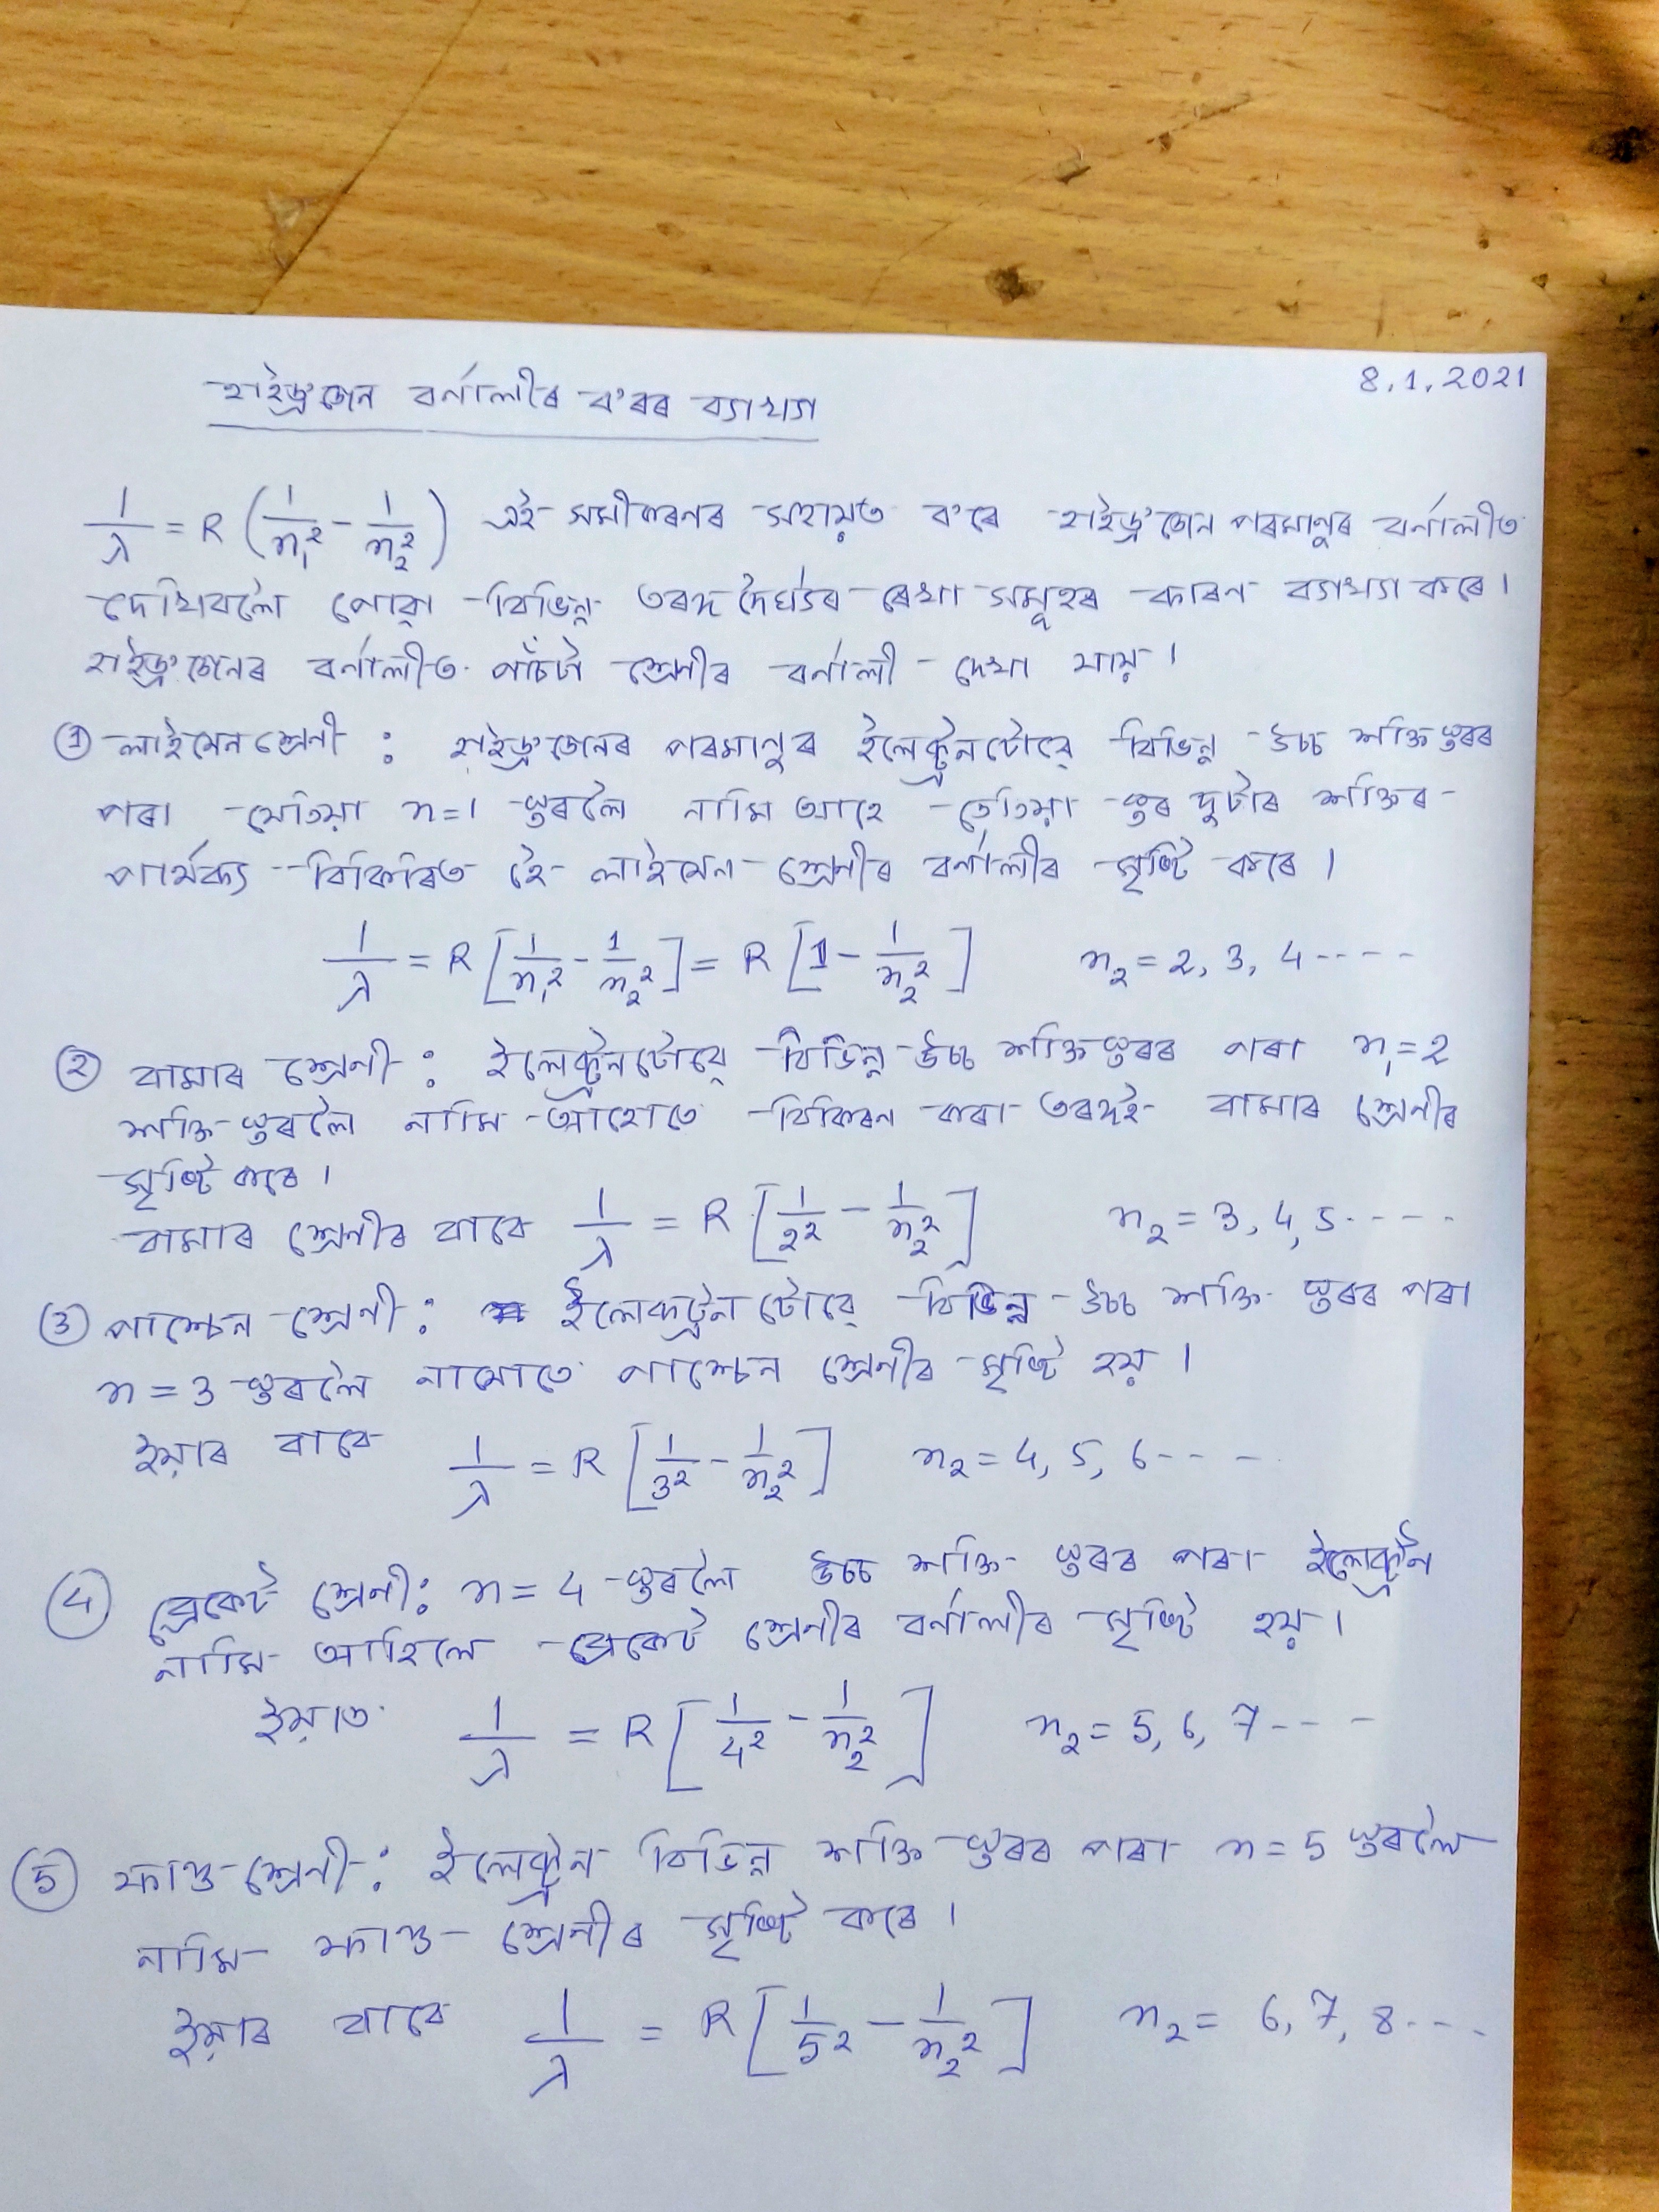 8.1.2021
হাইড্ৰ'জেন বৰ্নালীৰ ব'ৰৰ ব্যাখ্যা
1/λ = R (1/n₁² - 1/n₂²) এই সমীকৰনৰ সহায়ত ব'ৰে হাইড্ৰ'জেন পৰমানুৰ বৰ্নালীত
দেখিবলৈ পোৱা বিভিন্ন তৰঙ্গ দৈৰ্ঘ্যৰ ৰেখা সমূহৰ কাৰন ব্যাখ্যা কৰে।
হাইড্ৰ'জেনৰ বৰ্নালীত পাঁচটা শ্ৰেনীৰ বৰ্নালী দেখা যায়।
① লাইমেন শ্ৰেনী : হাইড্ৰ'জেনৰ পৰমানুৰ ইলেক্ট্ৰনটোৱে বিভিন্ন উচ্চ শক্তিস্তৰৰ
পৰা যেতিয়া n=1 স্তৰলৈ নামি আহে তেতিয়া স্তৰ দুটাৰ শক্তিৰ
পাৰ্থক্য বিকিৰিত হৈ লাইমেন শ্ৰেনীৰ বৰ্নালীৰ সৃষ্টি কৰে।
1/λ = R [1/n₁² - 1/n₂²] = R [1 - 1/n₂²] n₂ = 2, 3, 4 ----
② বামাৰ শ্ৰেনী : ইলেক্ট্ৰনটোৱে বিভিন্ন উচ্চ শক্তিস্তৰৰ পৰা n₁ = 2
শক্তি স্তৰলৈ নামি আহোতে বিকিৰন কৰা তৰঙ্গই বামাৰ শ্ৰেনীৰ
সৃষ্টি কৰে।
বামাৰ শ্ৰেনীৰ বাবে 1/λ = R [1/2² - 1/n₂²] n₂ = 3, 4, 5 ----
③ পাশ্চেন শ্ৰেনী : ইলেকট্ৰনটোৱে বিভিন্ন উচ্চ শক্তি স্তৰৰ পৰা
n = 3 স্তৰলৈ নামোতে পাশ্চেন শ্ৰেনীৰ সৃষ্টি হয়।
ইয়াৰ বাবে 1/λ = R [1/3² - 1/n₂²] n₂ = 4, 5, 6 ---
④ ব্ৰেকেট শ্ৰেনী : n = 4 স্তৰলৈ উচ্চ শক্তি স্তৰৰ পৰা ইলেক্ট্ৰন
নামি আহিলে ব্ৰেকেট শ্ৰেনীৰ বৰ্নালীৰ সৃষ্টি হয়।
ইয়াত 1/λ = R [1/4² - 1/n₂²] n₂ = 5, 6, 7 ---
⑤ ফাণ্ড শ্ৰেনী : ইলেক্ট্ৰন বিভিন্ন শক্তি স্তৰৰ পৰা n = 5 স্তৰলৈ
নামি ফাণ্ড শ্ৰেনীৰ সৃষ্টি কৰে।
ইয়াৰ বাবে 1/λ = R [1/5² - 1/n₂²] n₂ = 6, 7, 8 ----